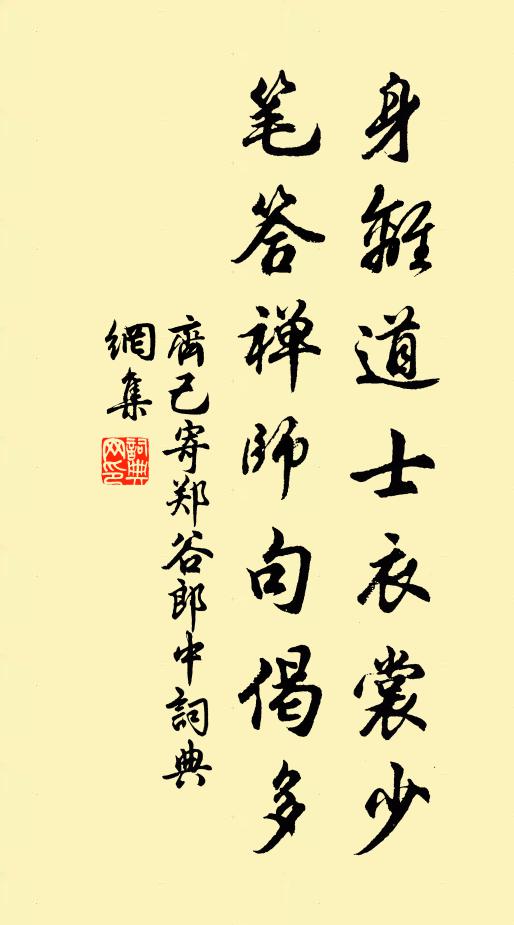 身離道士衣裳少
笔答禅师句偈多
齊己寄郑谷郎中詞典
網集
詞典网印